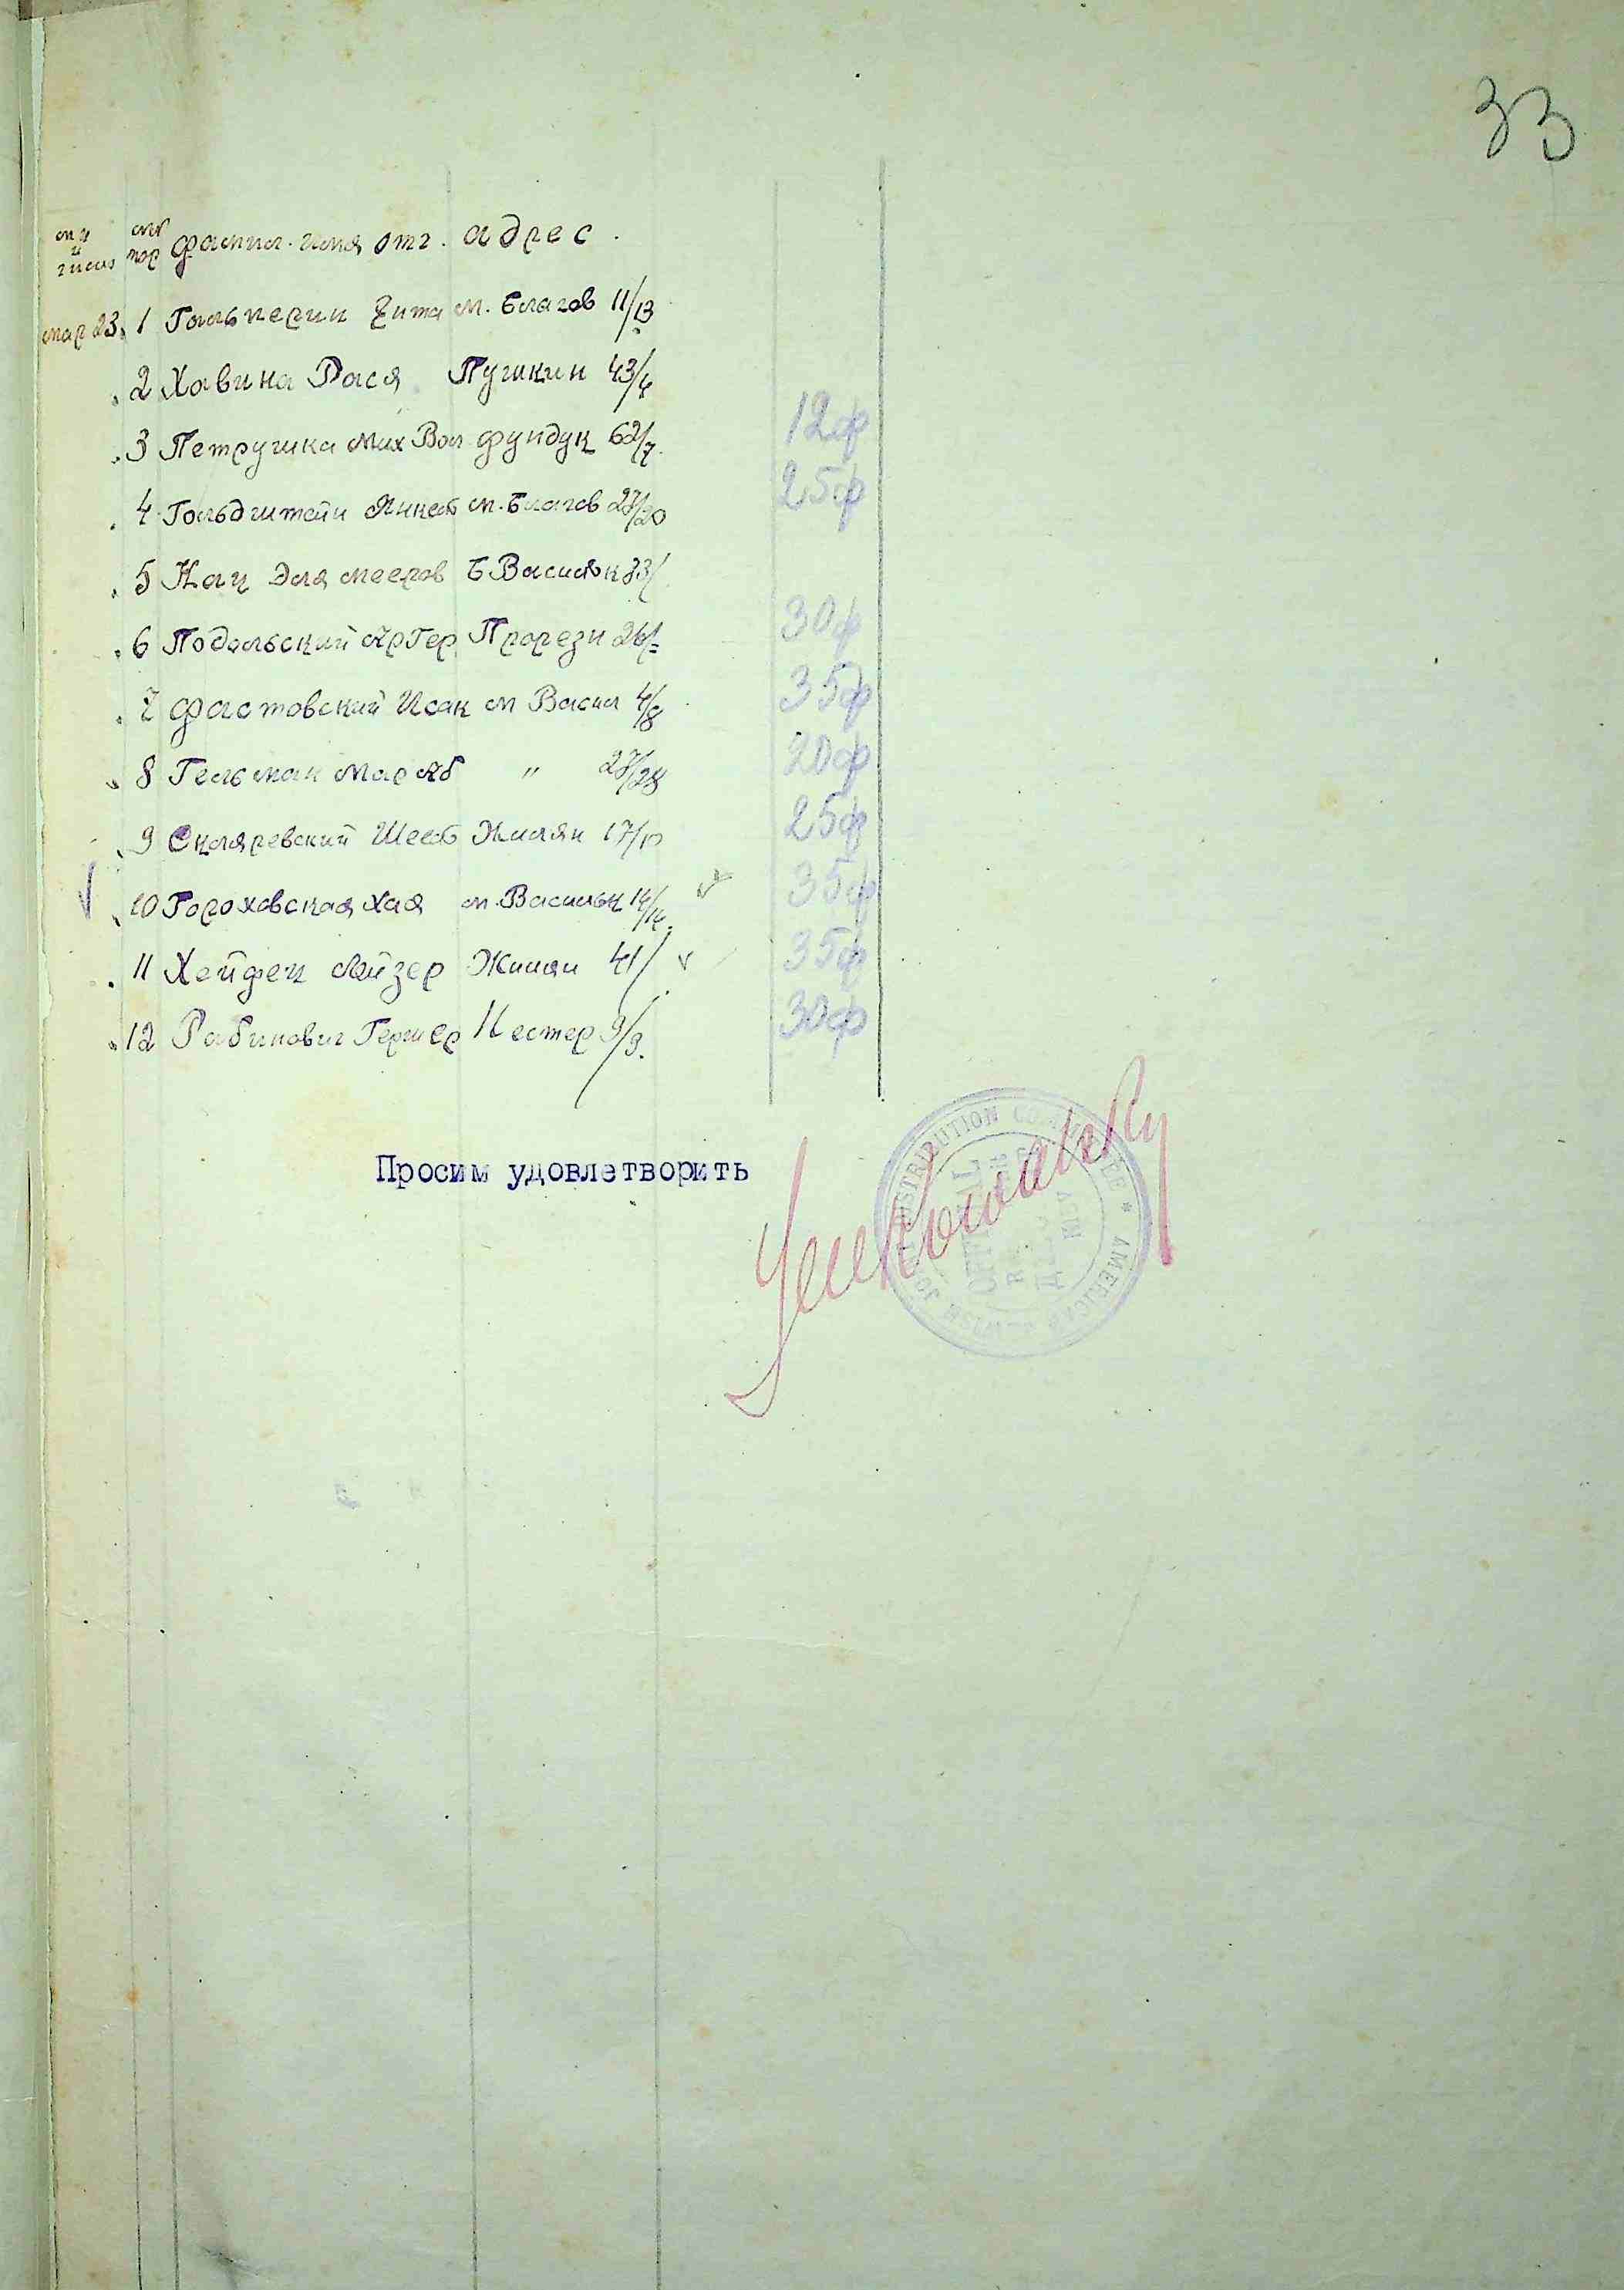 33
фамил. имя отч. адрес.
мар 23. 1 Гальперин Зита м. Благов 11/13
2 Хавина Рася Пушкин 43/4
3 Петрушка Мих Вол фундук 62/7. 12ф
4 Гольдштейн м. Благов 27/20 25ф
5 Кац Эля Мееров Б Васильк 33/
6 Подольский Ар Гер Прорезн 26/= 30ф
7 Фастовский Исак м Васил 4/8 35ф
8 Гельман Мар Аб " 27/28 20ф
9 Скляревский Жилян 17/10 25ф
10 Гороховская Хая м. Васильк 14/14 35ф
11 Хейфец Лейзер Жилян 41/ 35ф
12 Рабинович Гершер Нестер 9/9. 30ф
Просим удовлетворить
AMERICAN JEWISH JOINT DISTRIBUTION COMMITTEE *